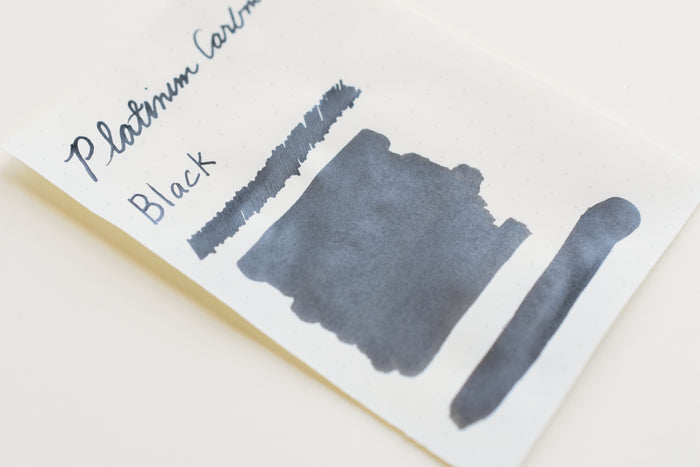 Platinum Carbon
Black